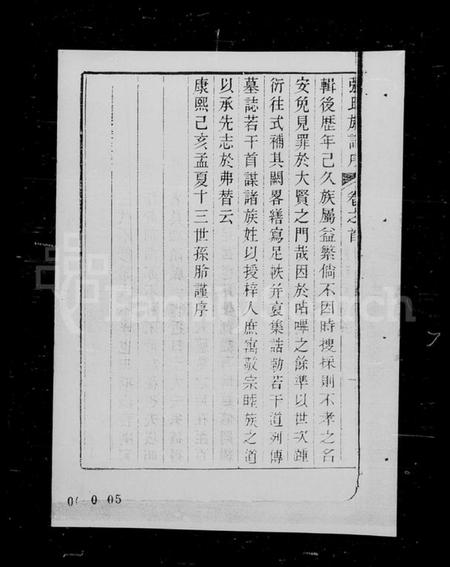 張氏族譜序 卷之首
輯後歷年已久族屬益繁倘不因時搜採則不孝之名
安免見罪於大賢之門哉因於呫嗶之餘準以世次踵
衍往式補其闕畧繕寫足帙并裒集誥勅若干道列傳
墓誌若干首謀諸族姓以授梓人庶寓敬宗睦族之道
以承先志於弗替云
康熙己亥孟夏十三世孫胎謹序
0 0 05